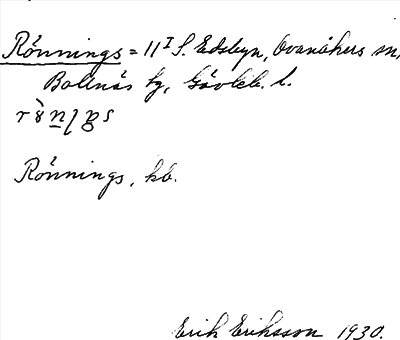 Rönnings = 11 I S. Edsbyn, Ovanåkers sn,
Bollnäs kg, Gävleb. l.
Rönnings, kb.
Erik Eriksson 1930.